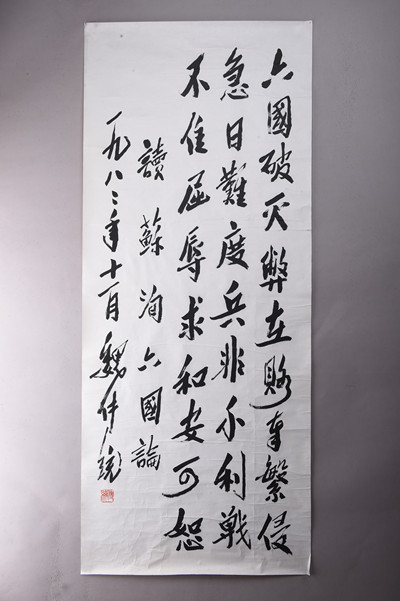 六國破灭弊在賂奉繁侵
急日難度兵非不利戦
不佳屈辱求和安可恕
讀蘇洵六國論
一九八二年十一月魏传统